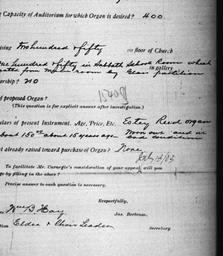 Capacity of Auditorium for which Organ is desired? 400.
Two hundred & fifty on floor of Church
hundred & fifty in Sabbath School Room which
in gallery
from room by Glass partition
210
proposed Organ?
(This question is for explicit answer after investigation.)
of present Instrument, Age, Price, Etc. Estey Reed organ
about 150 about 15 years ago. Worn out and in
bad condition
already raised toward purchase of Organ? None
To facilitate Mr. Carnegie's consideration of your appeal, will you
by filling in the above?
Precise answer to each question is necessary.
Respectfully,
Wm B Hay
Jas. Bertram,
Elder & Choir Leader
Secretary